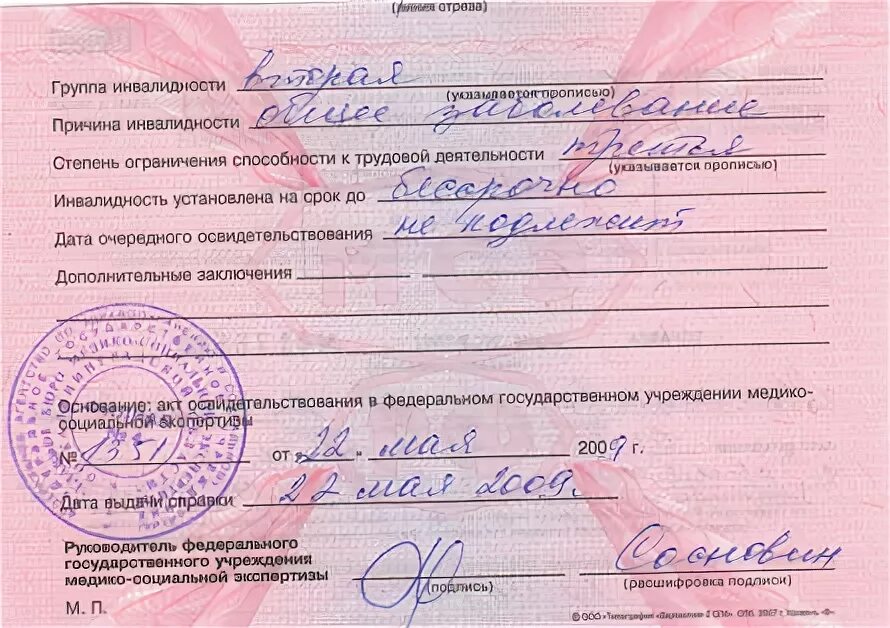 (линия отрыва)
Группа инвалидности вторая
(указывается прописью)
Причина инвалидности общее заболевание
Степень ограничения способности к трудовой деятельности третья
(указывается прописью)
Инвалидность установлена на срок до бессрочно
Дата очередного освидетельствования не подлежит
Дополнительные заключения
Основание: акт освидетельствования в федеральном государственном учреждении медико-
социальной экспертизы
№ 1351 от „22 „ мая 2009 г.
Дата выдачи справки 22 мая 2009г.
Руководитель федерального
государственного учреждения
медико-социальной экспертизы
(подпись)
Сосновин
(расшифровка подписи)
М. П.